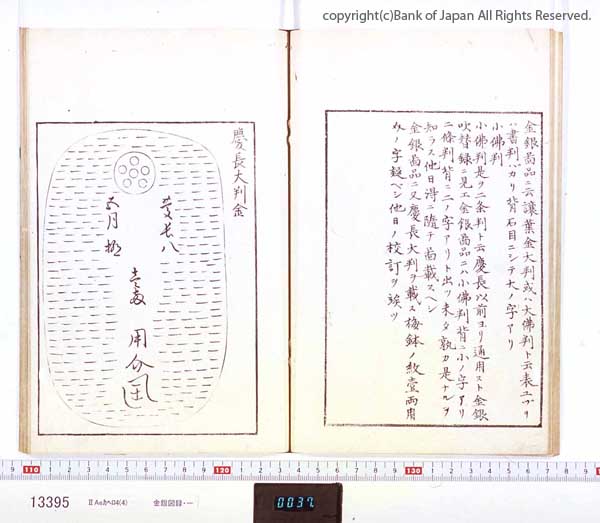 copyright(c)Bank of Japan All Rights Reserved.
金銀啚品ニ云譲葉金大判或ハ大佛判ト云表エブリ
ハ書判バカリ背石目ニシテ大ノ字アリ
小佛判
小佛判是ヲ二条判ト云慶長以前ヨリ通用スト金銀
吹替録ニ見エ金銀啚品ニハ小佛判背ニ小ノ字アリ
二條判背ニ二ノ字アリト出ツ未タ孰カ是ナルヲ
知ラス他日得ニ随テ啚載スヘシ
金銀啚品ニ又慶長大判ヲ載ス梅鉢ノ紋壹両用
ノ字疑ベシ他日ノ校訂ヲ俟ツ
慶長大判金
慶長八
五月極
用介
110
120
130
13395
ⅡAeカヘロ4(4)
金銀図録・一
0037